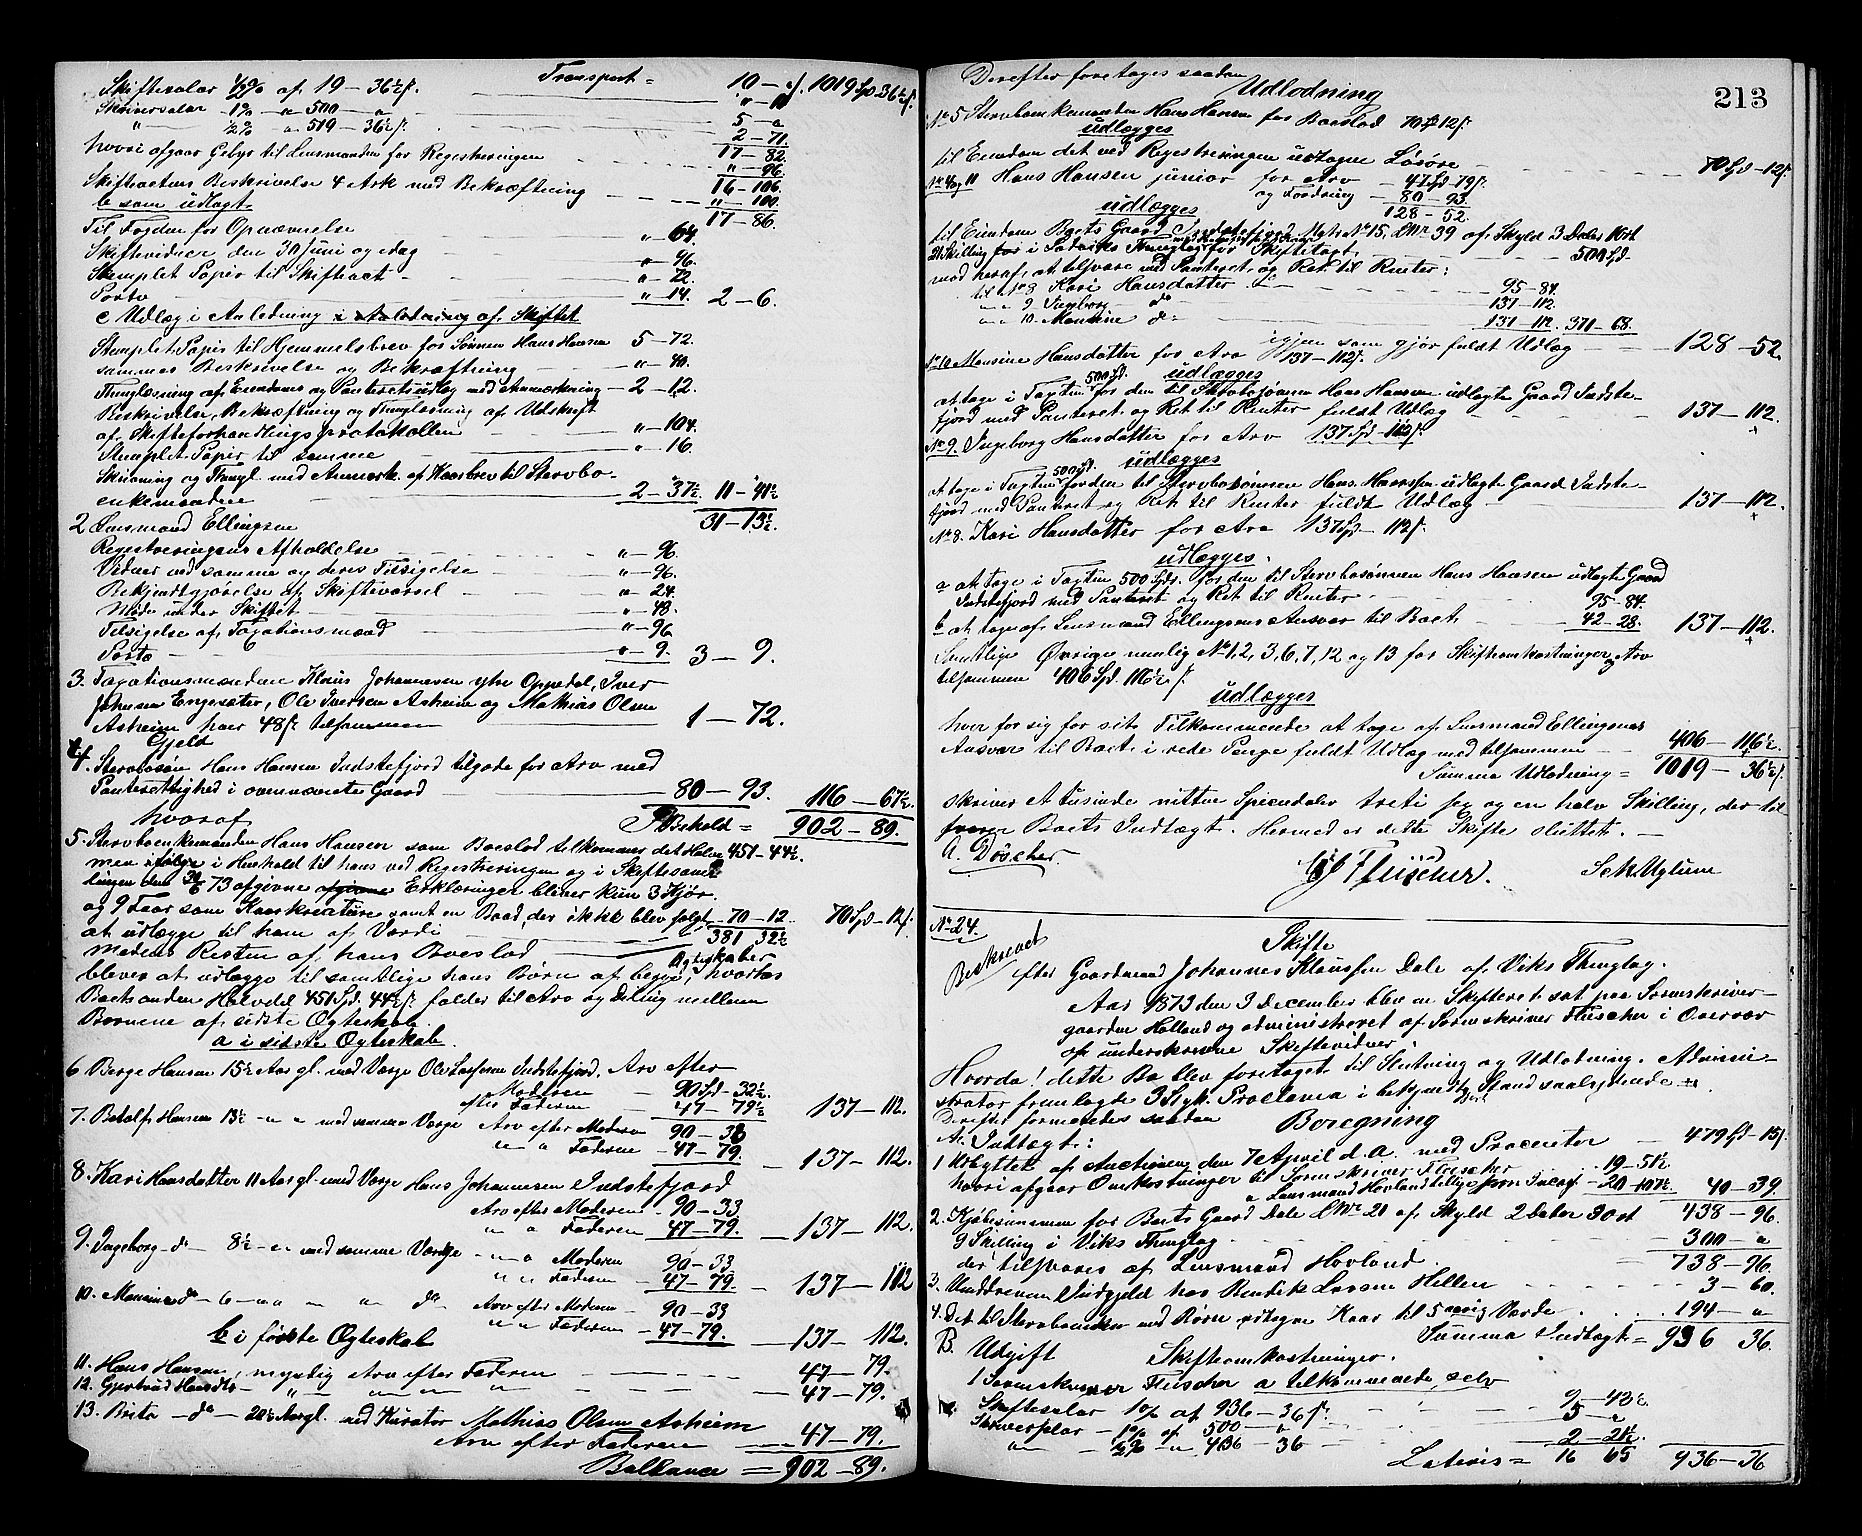 Transport = 10 - „ s. 1019 Spd 36½ s.
Skiftesalær ½% af 19 - 36½ s. " - 11
Skriversalær 1% - a 500 - a 5 - a
" ½% a 519 - 36½ s. 2 - 71
17 - 82
hvori afgaar Gebyr til Lensmanden for Registreringen " - 96
16 - 106
Skifteactens Beskrivelse 4 Ark med Bekræftning " - 100
17 - 86
b som udlagt
Til Fogden for Opnævnelse " - 64
Skiftevidner den 30 Juni og idag " - 96
Stemplet Papir til Skifteact " - 72
Porto " - 14 2 - 6
c Udlæg i Anledning af Skiftet
Stemplet Papir til Hjemmelsbrev for Sønnen Hans Hansen 5 - 72
sammes Beskrivelse og Bekræftning " - 40
Thinglæsning af Eiendoms og Panteretsudlæg med Anmærkning 2 - 12
Beskrivelse, Bekræftning og Thinglæsning af Udskrift
af Skifteforhandlingsprotokollen " - 104
Stemplet Papir til samme " - 16
Skrivning og Thingl. med Anmærk. af Kaarbrev til Stervbo-
enkemanden 2 - 37½ 11 - 41½
31 - 13½
2 Lensmand Ellingsen
Registreringens Afholdelse " - 96
Vidner ved samme og deres Tilsigelse " - 96
Bekjendtgjørelse af Skiftevarsel " - 24
Møde under Skiftet " - 48
Tilsigelse af Taxationsmænd " - 96
Porto " - 9 3 - 9
3. Taxationsmændene Klaus Johannesen ytre Oppedal, Iver
Johnsen Engesæter, Ole Iversen Asheim og Mathias Olsen
Asheim hver 48 s. tilsammen 1 - 72
Gjeld
4. Stervbosøn Hans Hansen Indstefjord tilgode for Arv med
Panterettighed i ovennævnte Gaard 80 - 93 116 - 67½
hvoraf Behold = 902 - 89
5. Stervboenkemanden Hans Hansen som Boeslod tilkommer det Halve 451 - 44½
men ifølge i Henhold til hans ved Registreringen og i Skiftesam-
lingen den 30/6 73 afgivne Erklæringer bliver kun 3 Kjør
og 9 Faar som Kaarkreature samt en Baad, der ikke blev solgt 70 - 12 70 Spd - 12 s.
at udlægge til ham af Værdi 381 32½
medens Resten af hans Boeslod Ægteskaber
bliver at udlægge til samtlige hans Børn af begge, hvortes
Boets anden Halvdel 451 Spd. 44½ s. falder til Arv og Deling mellem
Børnene af sidste Ægteskab.
a i sidste Ægteskab
6 Børge Hansen 15½ Aar gl. med Værge Ole Indstefjord, Arv efter
Moderen 90 Spd - 32½
efter Faderen 47 - 79½ 137 - 112
7. Botolf Hansen 13½ - a a med samme Værge Arv efter Moderen 90 - 33
" a Faderen 47 - 79 137 - 112
8. Kari Hansdatter 11 Aar gl. med Værge Hans Johannesen Indstefjord
Arv efter Moderen 90 - 33
" a Faderen 47 - 79 137 - 112
9. Ingeborg d° 8½ - a med samme Værge " a Moderen 90 - 33
" " Faderen 47 - 79 137 - 112
10. Monsine d° - 6 - a a - " a d° Arv efter Moderen 90 - 33
" " Faderen 47 - 79 137 - 112
b i første Ægteskab
11. Hans Hansen, myndig Arv efter Faderen 47 - 79
12. Gjertrud Hansdtr " 47 - 79
13. Brita - d° - 20½ Aar gl. med Kurator Mathias Olsen Asheim
Arv efter Faderen 47 - 79
Ballance = 902 - 89
213
Derefter foretages saadan
Udlodning
No 5 Stervboenkemanden Hans Hansen for Boeslod 70 Spd 12 s.
udlægges
til Eiendom det ved Registreringen udtagne Løsøre 70 Spd - 12 s.
No 4 og 11 Hans Hansen junior for Arv 47 Spd - 79 s.
og Fordring 80 - 93
udlægges 128 - 52
til Eiendom Boets Gaard Indstefjord Matr No 15, LNr 39 af Skyld 3 Daler 1 ort
21 Skilling i Ladviks Thinglag for Skiftetaxt 500 Spd.
mod heraf, at tilsvare med Panteret, og Ret til Renter:
til No 8 Kari Hansdatter 95 - 84
" " 9 Ingeborg d° 137 - 112
" " 10 Monsine d° 137 - 112 371 - 68
igjen som gjør fuldt Udlæg 128 - 52
No 10 Monsine Hansdatter for Arv 137 - 112 s.
udlægges
at tage i Taxten 500 Spd. for den til Stervbosønnen Hans Hansen udlagte Gaard Indste-
fjord med Panteret og Ret til Renter fuldt Udlæg 137 - 112
No 9. Ingeborg Hansdatter for Arv 137 Spd - 112 s.
udlægges
at tage i Taxten 500 Spd. for den til Stervbosønnen Hans Hansen udlagte Gaard Indste-
fjord med Panteret og Ret til Renter fuldt Udlæg 137 - 112
No 8. Kari Hansdatter for Arv 137 Spd - 112 s.
udlægges.
a at tage i Taxten 500 Spd. for den til Stervbosønnen Hans Hansen udlagte Gaard
Indstefjord med Panteret og Ret til Renter 95 - 84
b at tage af Lensmand Ellingsens Ansvar til Boet 42 - 28 137 - 112
Samtlige Øvrige nemlig No 1, 2, 3, 6, 7, 12 og 13 for Skifteomkostninger og Arv
tilsammen 406 Spd. 116½ s.
udlægges
hver for sig for sit Tilkommende at tage af Lensmand Ellingsens
Ansvar til Boet i rede Penge fuldt Udlæg med tilsammen 406 - 116½
Summa Udlodning = 1019 - 36½ s.
skriver et tusinde nitten Speciedaler treti sex og en halv Skilling, der til-
svarer Boets Indtægt. Hermed er dette Skifte sluttet. -
A. Døscher. Fleischer. Sch Mylum
No 24.
Beskrevet
Skifte
efter Gaardmand Johannes Klaussen Dale af Viks Thinglag.
Aar 1873 den 3 December blev en Skifteret sat paa Sorenskriver-
gaarden Holland og administreret af Sorenskriver Fleischer i Overvær
af underskrevne Skiftevidner
Hvorda! dette Bo blev foretaget til Slutning og Udlodning. Admini-
strator fremlagte 3 Stk. Proclama i bekjendtgjort Stand saalydende #
Derefter formeredes saadan Boregning
A. Indtægt:
1 Udbyttet af Auctionen den 7 April d. A. med Procenter 479 Spd - 15 s.
hvori afgaar Omkostninger til Sorenskriver Fleischer 19 - 51½
a Lensmand Hovland tillige som Incass. 20 - 107½ 40 - 39
438 - 96
2. Kjøbesummen for Boets Gaard Dale LNr 20 af Skyld 2 Daler 3 ort
9 Skilling i Viks Thinglag 300 - a
der tilsvares af Lensmand Hovland. 738 - 96
3. Inddreven Indgjeld hos Hendrik Larsen Hellen 3 - 60
4. Det til Stervboenken med Børn udtagne Kaar til 5 aarig Værdi 194 - a
Summa Indtægt = 936 36
B. Udgift Skifteomkostninger.
1 Sorenskriver Fleischer a tilkommende selv
Skiftesalær 1% af 936 - 36 s. 9 - 43½
Skriversalær - 1% af 500 - a 5 - a
" ½% - a 436 - 36 2 - 21½
Lateris = 16 65 936 - 36